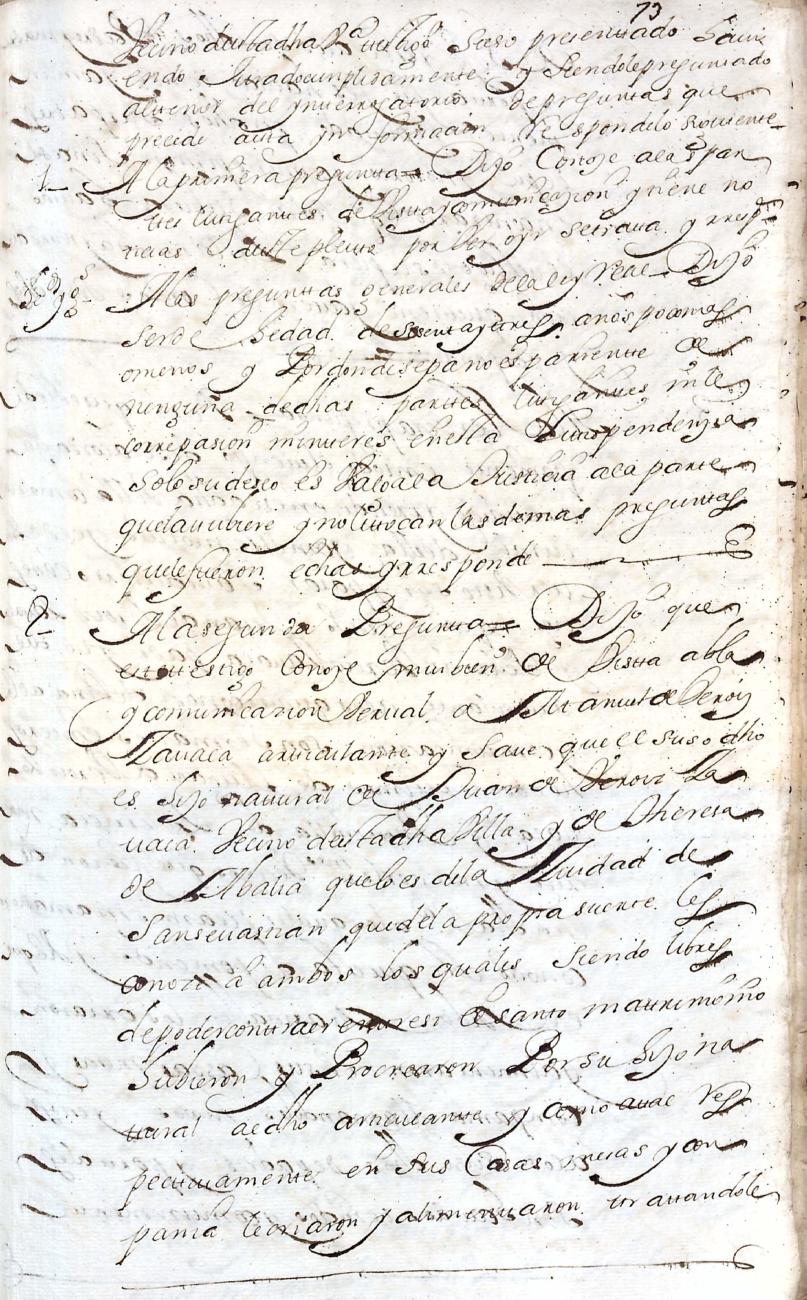 73
Vecino de esta dha Va testigo preso presentado havi
endo Jurado cumplidamente y siendole preguntado
al tenor del ynterrogatorio de preguntas que
precede a esta ynformacion respondio lo siguiente
1 A la primera pregunta = Dijo Conoze a las par
tes litigantes de vista y comunicazion y tiene no
ticias deste pleito por ber oyr se trata y resp.de
A las preguntas generales de la ley Real Dijo
ser de hedad de sesenta y tres años poco mas
o menos y por donde sepa no es pariente de
ninguna de dhas partes litigantes
ni interes en esta
solo su deseo es Valga la Justicia a la parte
que la tubiere y no le tocan las demas preguntas
que le fueron echas y rresponde
2 A la segunda Pregunta = Dijo que
este testigo Conoze mui bien de Vista abla
y comunicacion Verual a Manuel de Veroiz
Zauala articulante y saue que el suso dho
es hijo natural de Juan de Veroiz Za
uala Vecino de esta dha Villa y de Theresa
de Abalia que lo es de la Ziudad de
San seuastian que de la propria suerte les
conoze a ambos los quales siendo libres
de poder contraer entre si el santo matrimonio
hubieron y Procrearon Por su hijo na
tural a dho articulante y como a tal res
pectiuamente en sus Casas mesas y con
pania le criaron y alimentaron tratandole